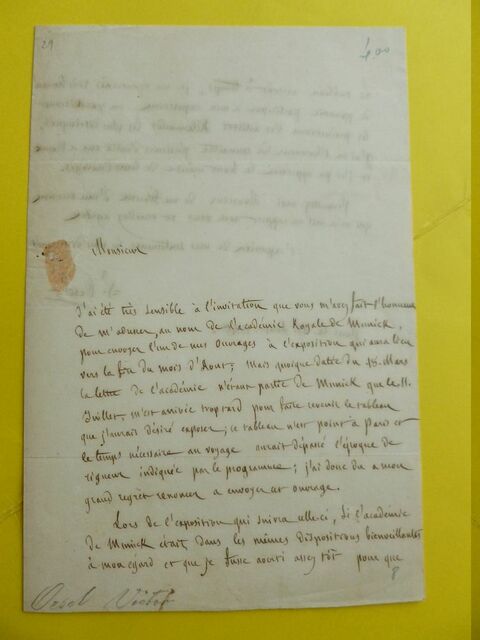 29
4,00
Monsieur
J'ai été très sensible à l'invitation que vous m'avez fait l'honneur
de m'adresser, au nom de l'académie Royale de Munick,
pour envoyer l'un de mes ouvrages à l'exposition qui aura lieu
vers la fin du mois d'Aout; Mais quoique datée du 18. Mars
la lettre de l'académie n'étant partie de Munick que le 11.
Juillet, m'est arrivée trop tard pour faire revenir le tableau
que j'aurais désiré exposer; ce tableau n'est point à Paris et
le temps nécessaire au voyage aurait dépassé l'époque de
rigueur indiquée par le programme; j'ai donc du a mon
grand regret renoncer a envoyer cet ouvrage.
Lors de l'exposition qui suivra celle-ci, si l'académie
de Munick était dans les mêmes dispositions bienveillantes
à mon egard et que je fusse averti assez tôt pour que
8
Orsel Victor